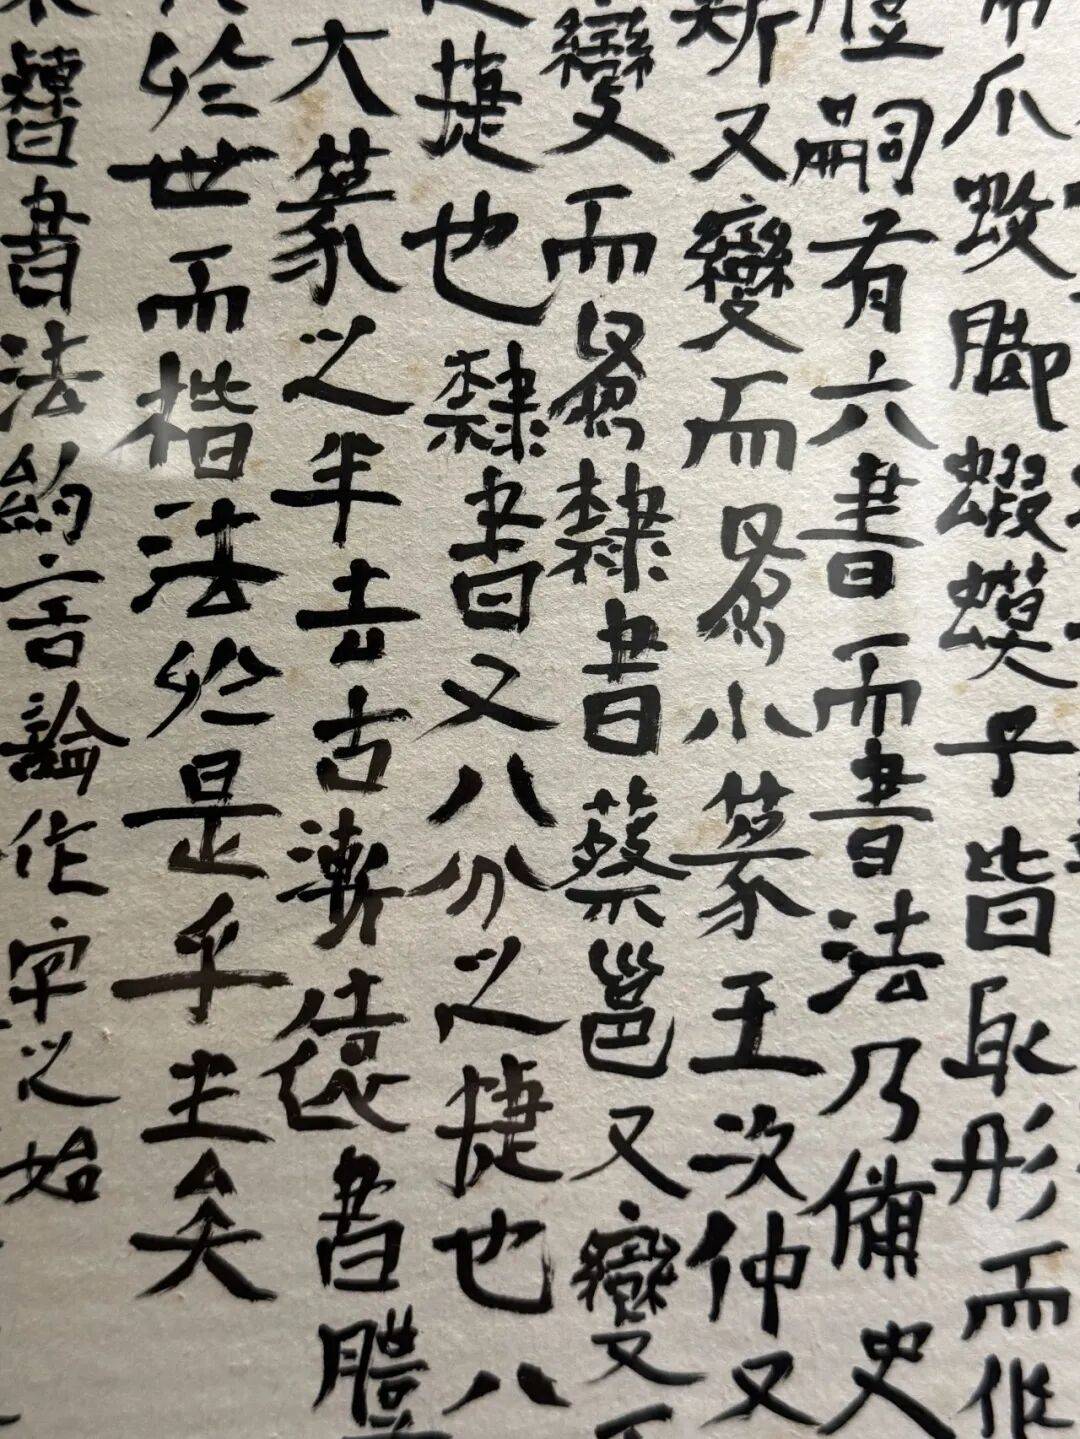 爪蹳脚蝦蟆子皆取形而作
嗣有六書而書法乃備史
斯又變而為小篆王次仲又
變而為隸書蔡邕又變而
捷也隸書又八分之捷也八
大篆之半去古漸遠書體
於世而楷法於是乎生矣
書法約言論作字之始